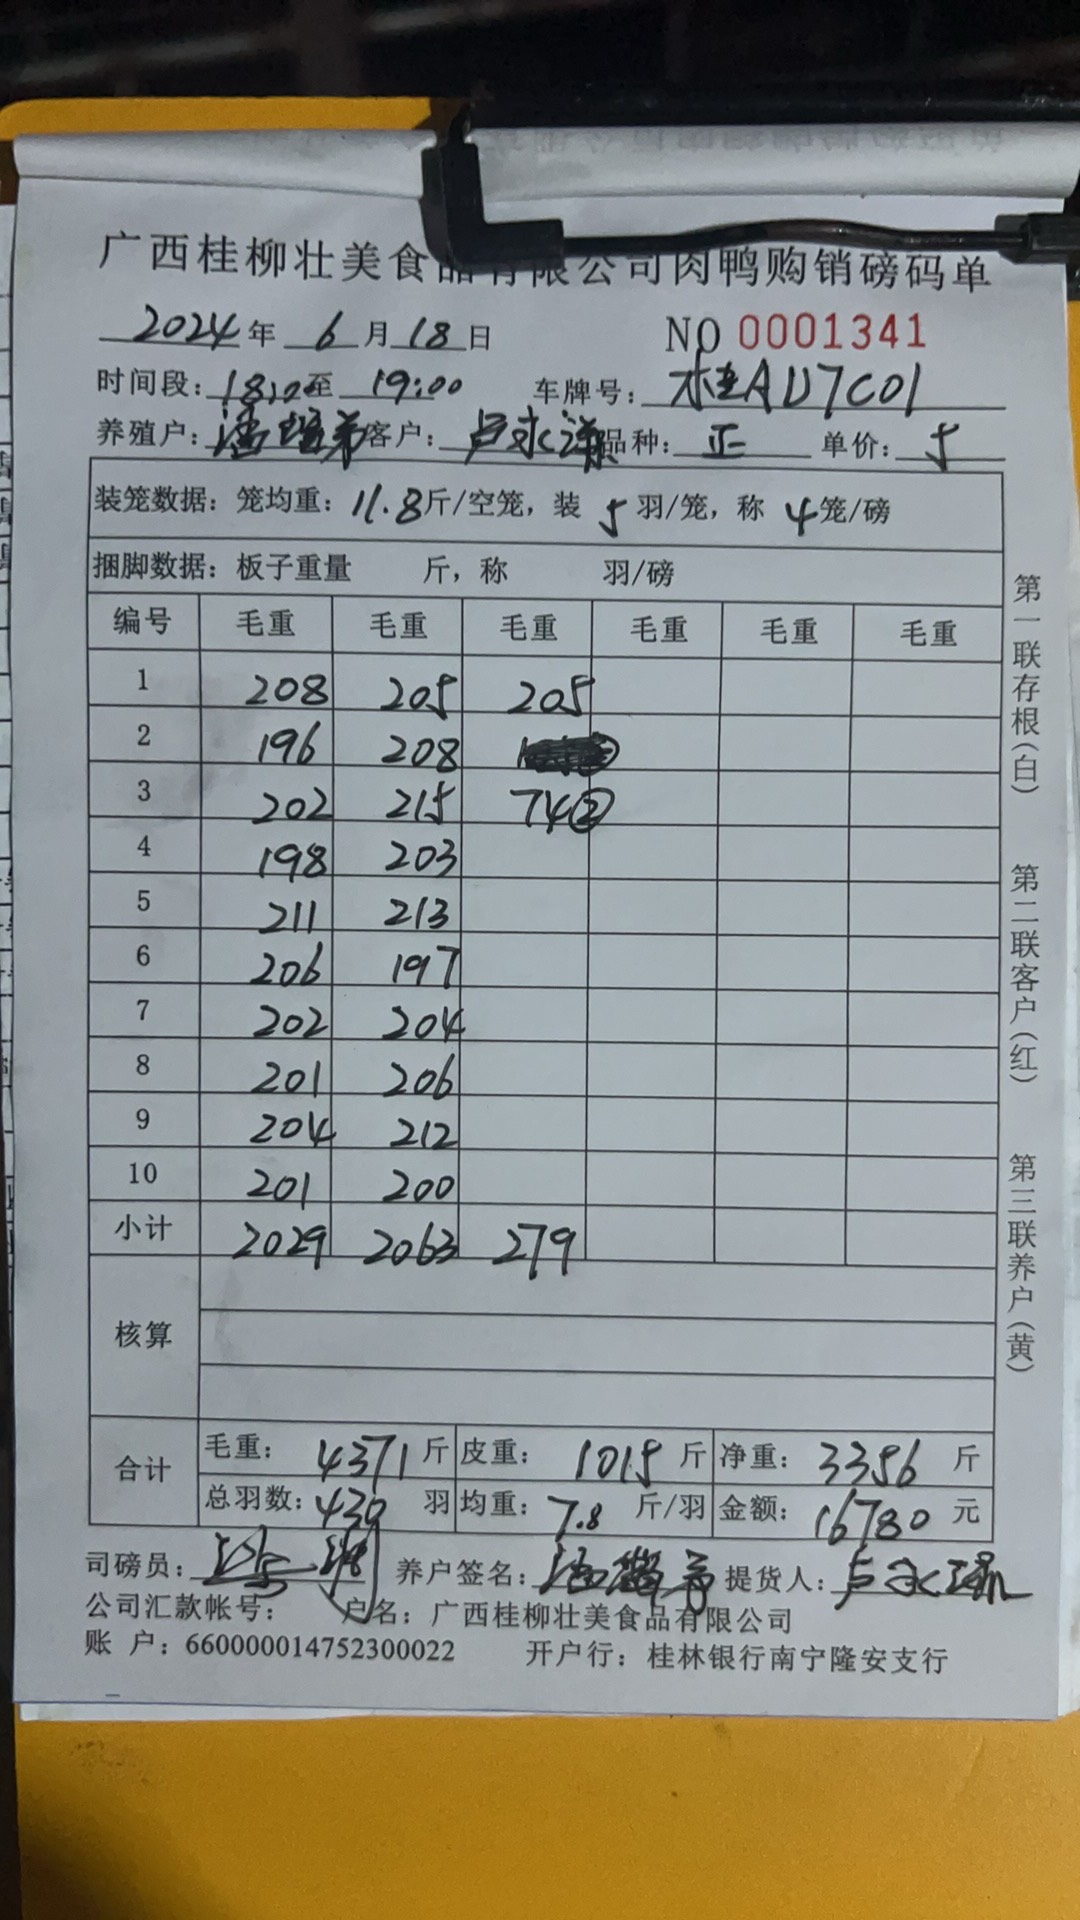 广西桂柳壮美食品有限公司肉鸭购销磅码单
2024年 6月18日 NO 0001341
时间段: 18:20至 19:00 车牌号: 桂AD7C01
养殖户: 潘 弟 客户: 卢永 品种: 正 单价: 5
装笼数据: 笼均重: 11.8斤/空笼, 装 5 羽/笼, 称 4笼/磅
捆脚数据: 板子重量 斤, 称 羽/磅
编号 毛重 毛重 毛重 毛重 毛重 毛重
1 208 205 205
2 196 208
3 202 215 74②
4 198 203
5 211 213
6 206 197
7 202 204
8 201 206
9 204 212
10 201 200
小计 2029 2063 279
核算
合计 毛重: 4371斤 皮重: 1015斤 净重: 3356斤
总羽数: 430 羽 均重: 7.8 斤/羽 金额: 16780元
司磅员: 养户签名: 潘 弟 提货人: 卢永
公司汇款帐号: 户名: 广西桂柳壮美食品有限公司
账 户: 660000014752300022 开户行: 桂林银行南宁隆安支行
第一联存根(白) 第二联客户(红) 第三联养户(黄)